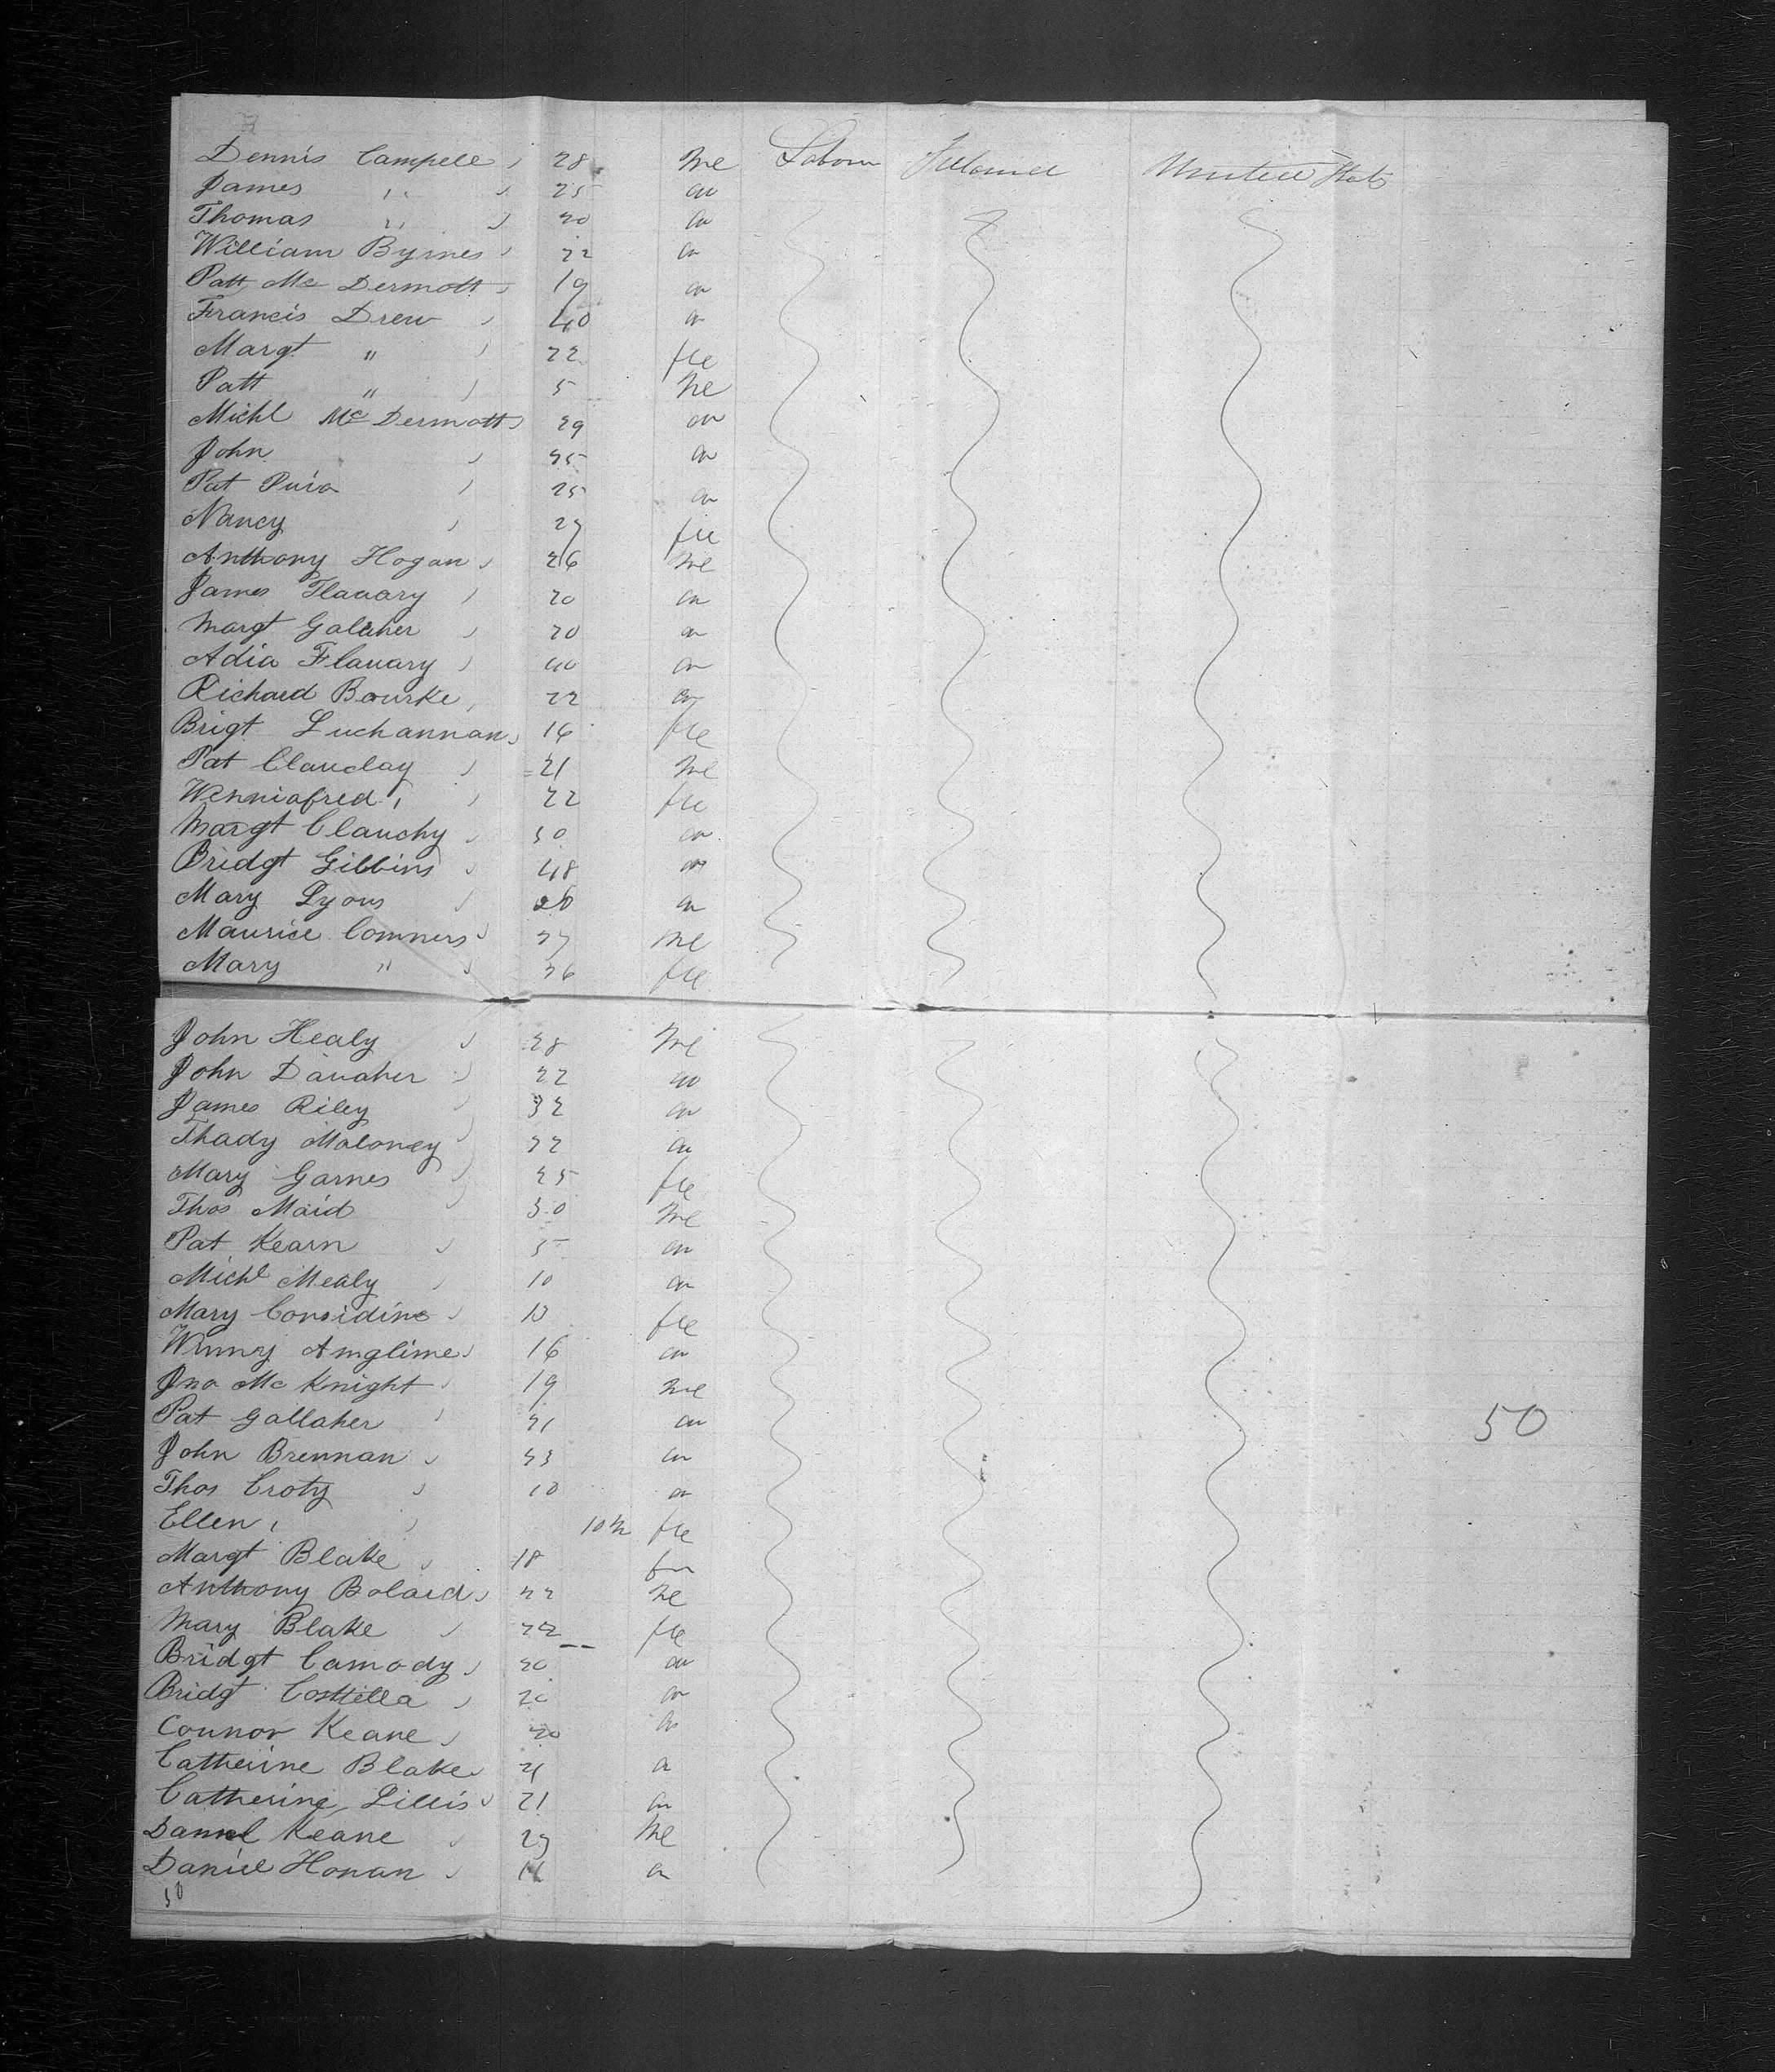 Dennis Campell 28 Me Labour Ireland United Stats
James " 25 do
Thomas " 20 do
William Byrnes 22 do
Patt Mc Dermott 19 do
Francis Drew 40 do
Margt " 22 fle
Patt " 5 Me
Michl Mc Dermott 29 do
John 25 do
Pat 25 do
Nancy 27 fle
Anthony Hogan 26 Me
James Flanary 20 do
Margt Galaher 20 do
Adia Flanary 40 do
Richard Bourke 22 do
Brigt Luchannan 16 fle
Pat Clanclay 21 Me
Wenniafred " 22 fle
Margt Clanchy 50 do
Bridgt Gibbins 48 do
Mary Lyons do
Maurice Conners 27 Me
Mary " 36 fle
John Healy 28 Me
John Danaher 22 do
James Riley 32 do
Thady Maloney 22 do
Mary Garnes 25 fle
Thos Maid 30 Me
Pat Kearn 5 do
Michl Mealy 10 do
Mary Considine 10 fle
Winny Amglime 16 do
Jno Mc Knight 19 Me
Pat Gallaher 21 do 50
John Brennan 23 do
Thos Croty 10 do
Ellen " 10 m fle
Margt Blake 18
Anthony Bolard 22 Me
Mary Blake 22 fle
Bridgt Camody 20 do
Bridgt Costtella 20 do
Connor Keane 20 do
Catherine Blake 21 do
Catherine Lillis 21 do
Daniel Keane 27 Me
Daniel Honan do
50